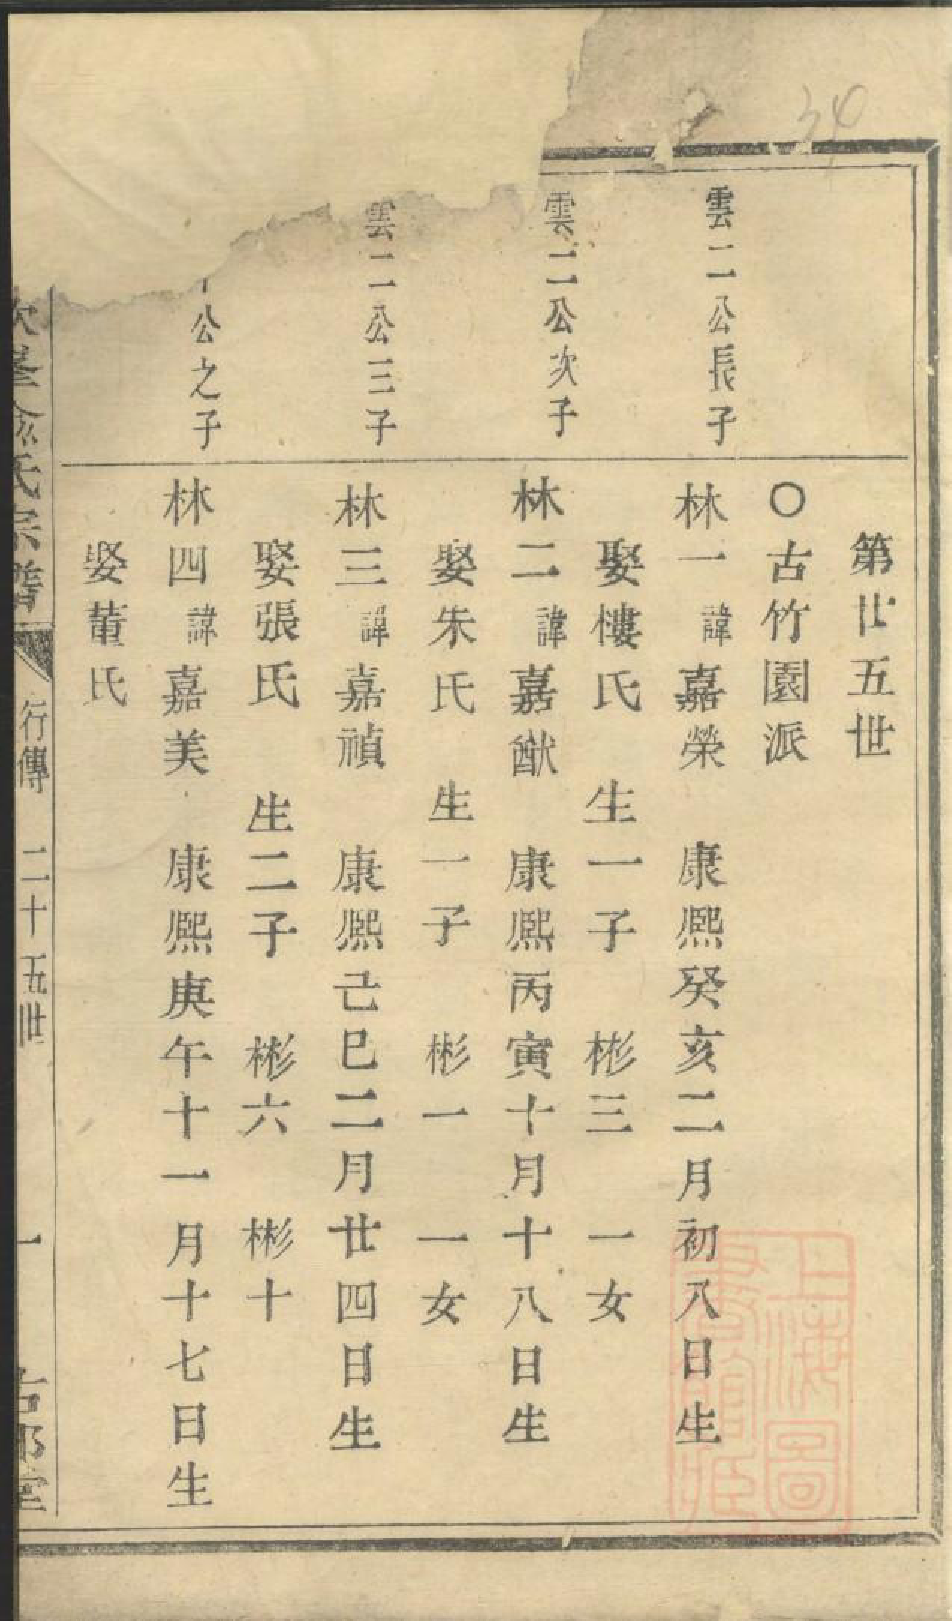 34
第廿五世
〇古竹園派
雲二公長子
林一諱嘉榮 康熙癸亥二月初八日生
娶樓氏 生一子 彬三 一女
雲二公次子
林二諱嘉猷 康熙丙寅十月十八日生
娶朱氏 生一子 彬一 一女
雲二公三子
林三諱嘉禎 康熙己巳二月廿四日生
娶張氏 生二子 彬六 彬十
公之子
林四諱嘉美 康熙庚午十一月十七日生
娶董氏
氏宗譜 行傳 二十五世 一
上海圖
書館藏